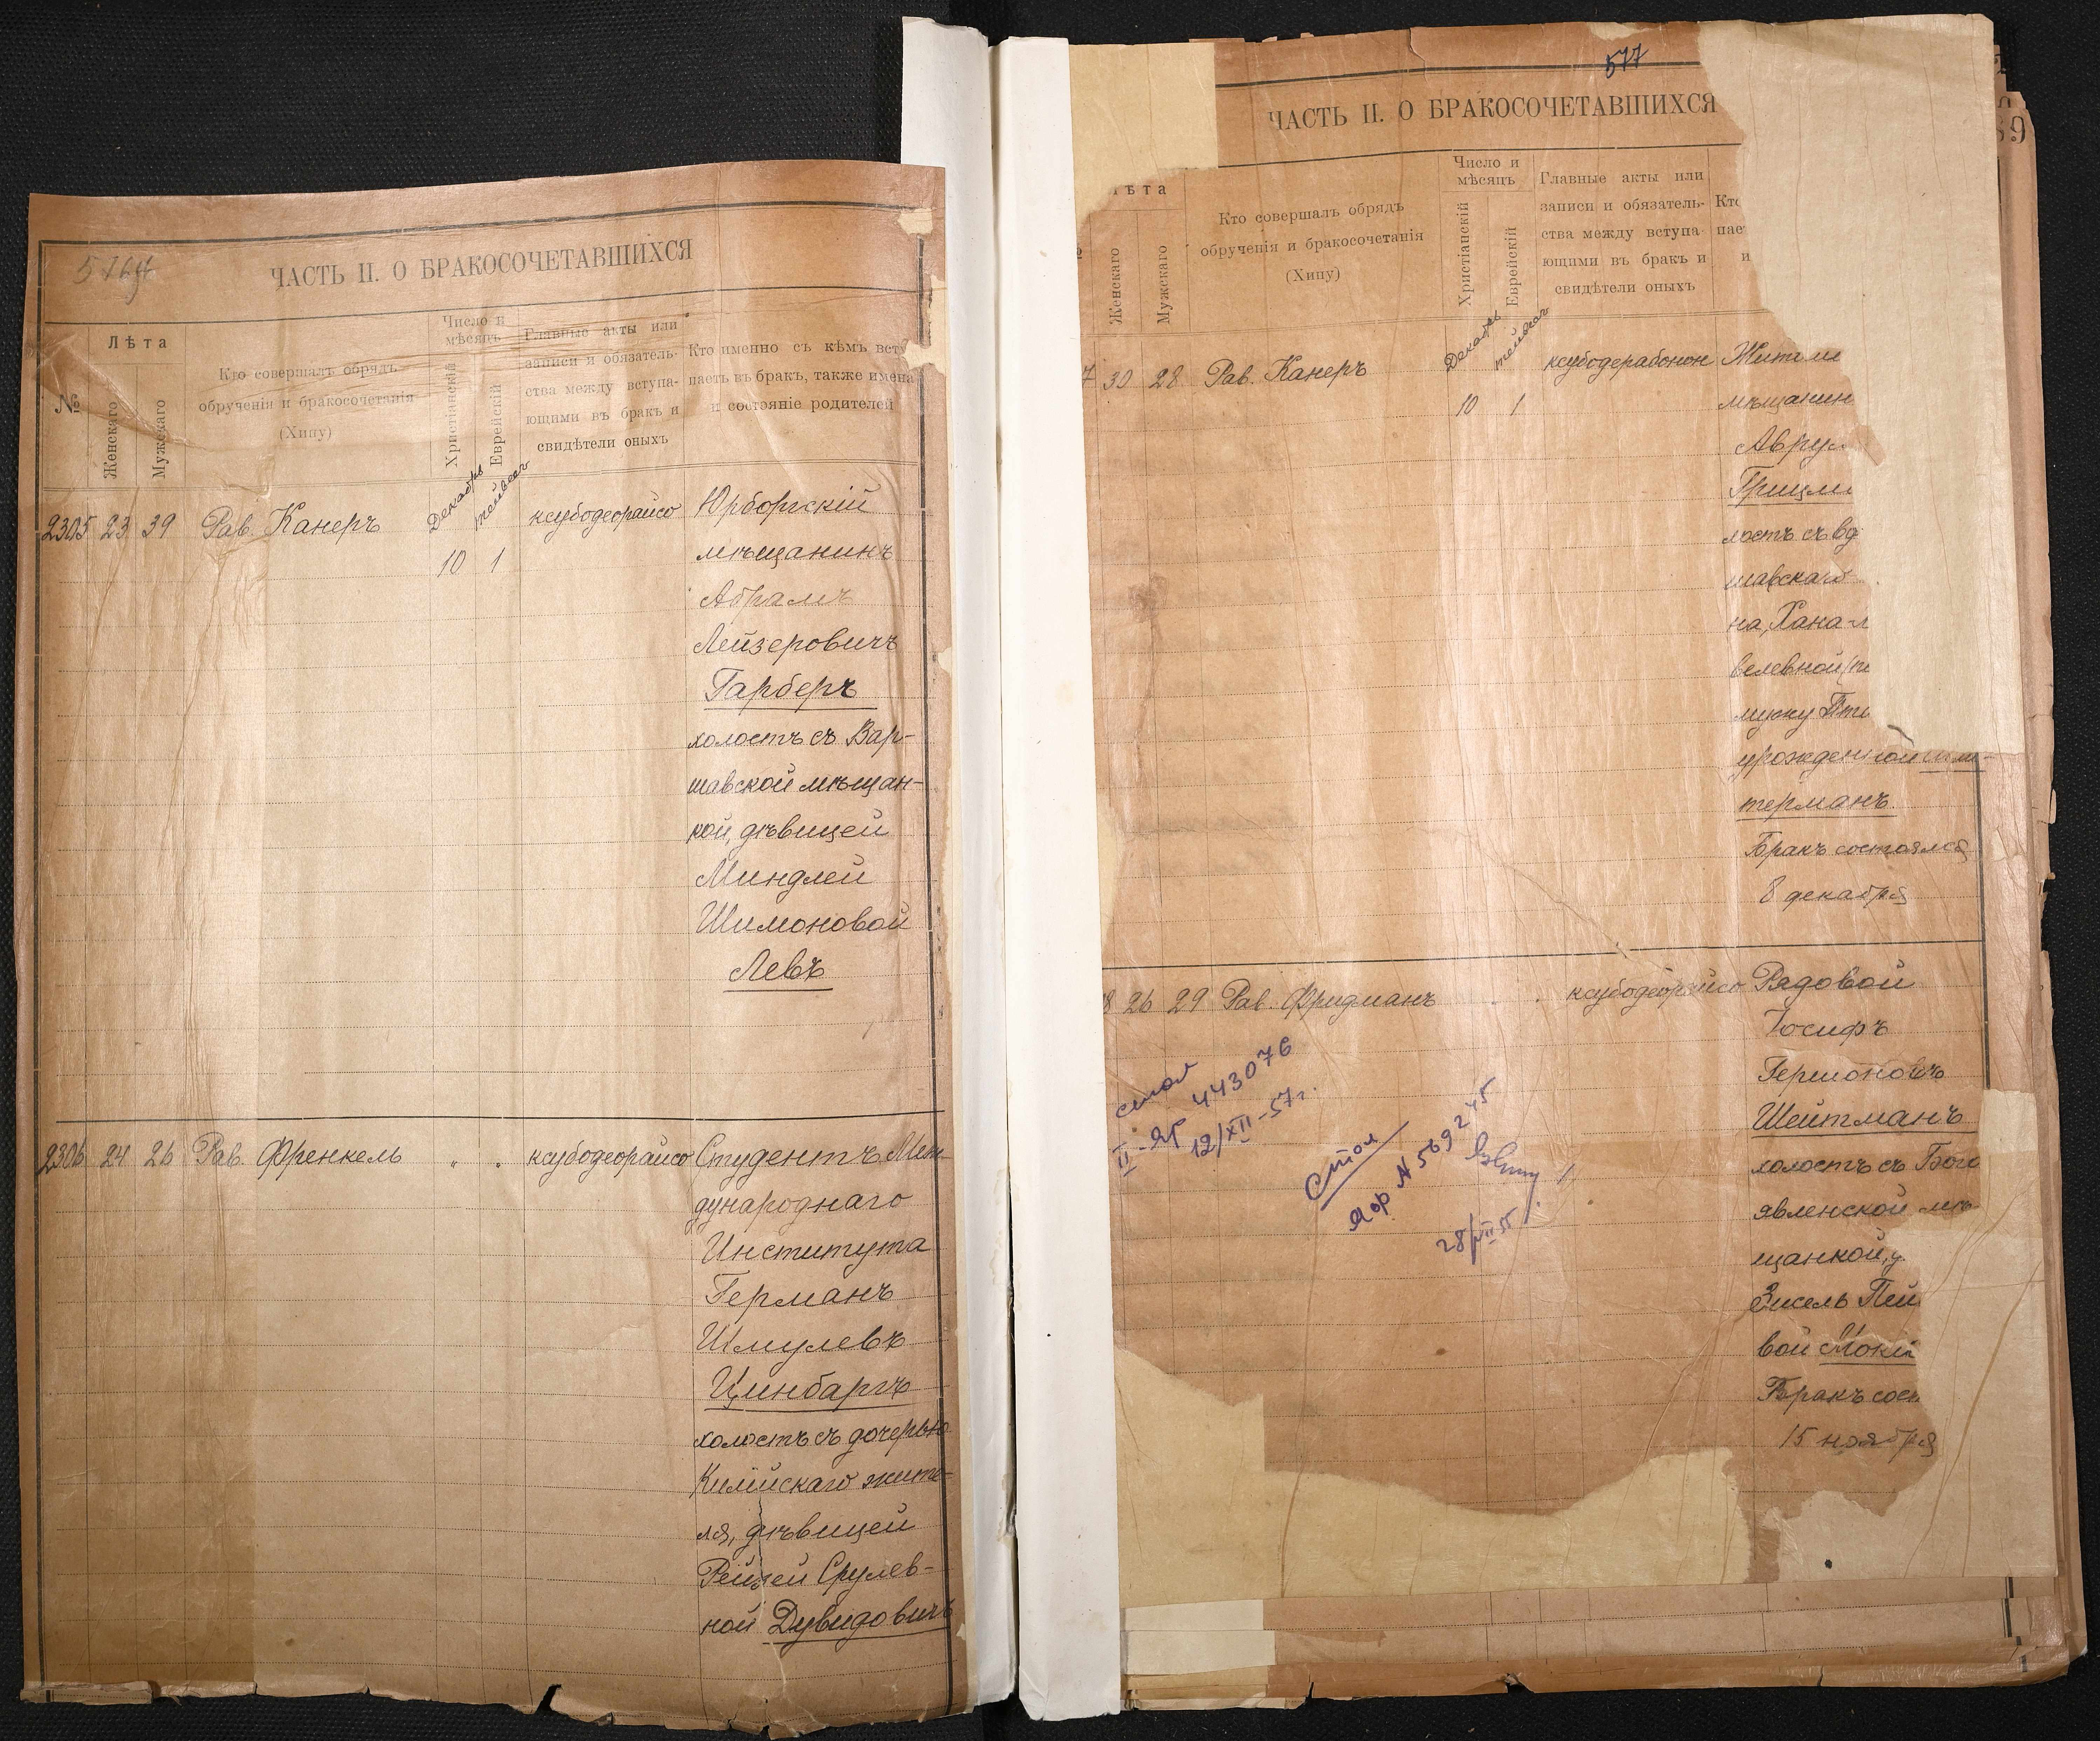 ЧАСТЬ II. О БРАКОСОЧЕТАВШИХСЯ
№
Лѣта
Женскаго
Мужскаго
Кто совершалъ обрядъ
обрученія и бракосочетанія
(Хипу)
Число и
мѣсяцъ
Христіанскій
Еврейскій
Главные акты или
записи и обязатель-
ства между вступа-
ющими въ бракъ и
свидѣтели оныхъ
Кто именно съ кѣмъ всту
паетъ въ бракъ, также имена
и состояніе родителей
2305 23 39 Рав. Канеръ
Декабрь
тейвесъ
10 1
ксубодеорайсо
Юрборгскій
мѣщанинъ
Абрамъ
Лейзеровичъ
Гарберъ
холостъ съ Вар-
шавской мѣщан-
кой, дѣвицей
Миндлей
Шимоновой
Левъ
2306 24 26 Рав. Френкель " " ксубодеорайсо
Студентъ Меж
дународнаго
Института
Германъ
Шмулевъ
Цинбаргъ
холостъ съ дочерью
Килійскаго жите-
ля, дѣвицей
Рейзей Срулев-
ной Дувидовичъ
577
ЧАСТЬ II. О БРАКОСОЧЕТАВШИХСЯ
ѣта
Женскаго
Мужскаго
Кто совершалъ обрядъ
обрученія и бракосочетанія
(Хипу)
Число и
мѣсяцъ
Христіанскій
Еврейскій
Главные акты или
записи и обязатель-
ства между вступа-
ющими въ бракъ и
свидѣтели оныхъ
Кто
пае
и
7 30 28 Рав. Канеръ
Декабрь
тейвесъ
10 1
ксубодерабонон
Жители
мѣщанин
Аврум
Грицм
лостъ съ вд
шавскаго
на, Хана-л
велевной
мужу
урожденной
терманъ
Бракъ состоялся
8 декабря
8 26 29 Рав. Фридманъ . . ксубодеорайсо
Рядовой
Іосифъ
Гершоновъ
Шейтманъ
холостъ съ Бого
явленской мѣ-
щанкой,
Зисель Пей
вой Моки
Бракъ сост
15 ноября
стол
II-ЯР 443076
12/XII-57г.
Стол
Яор N 569245
28/VII 55